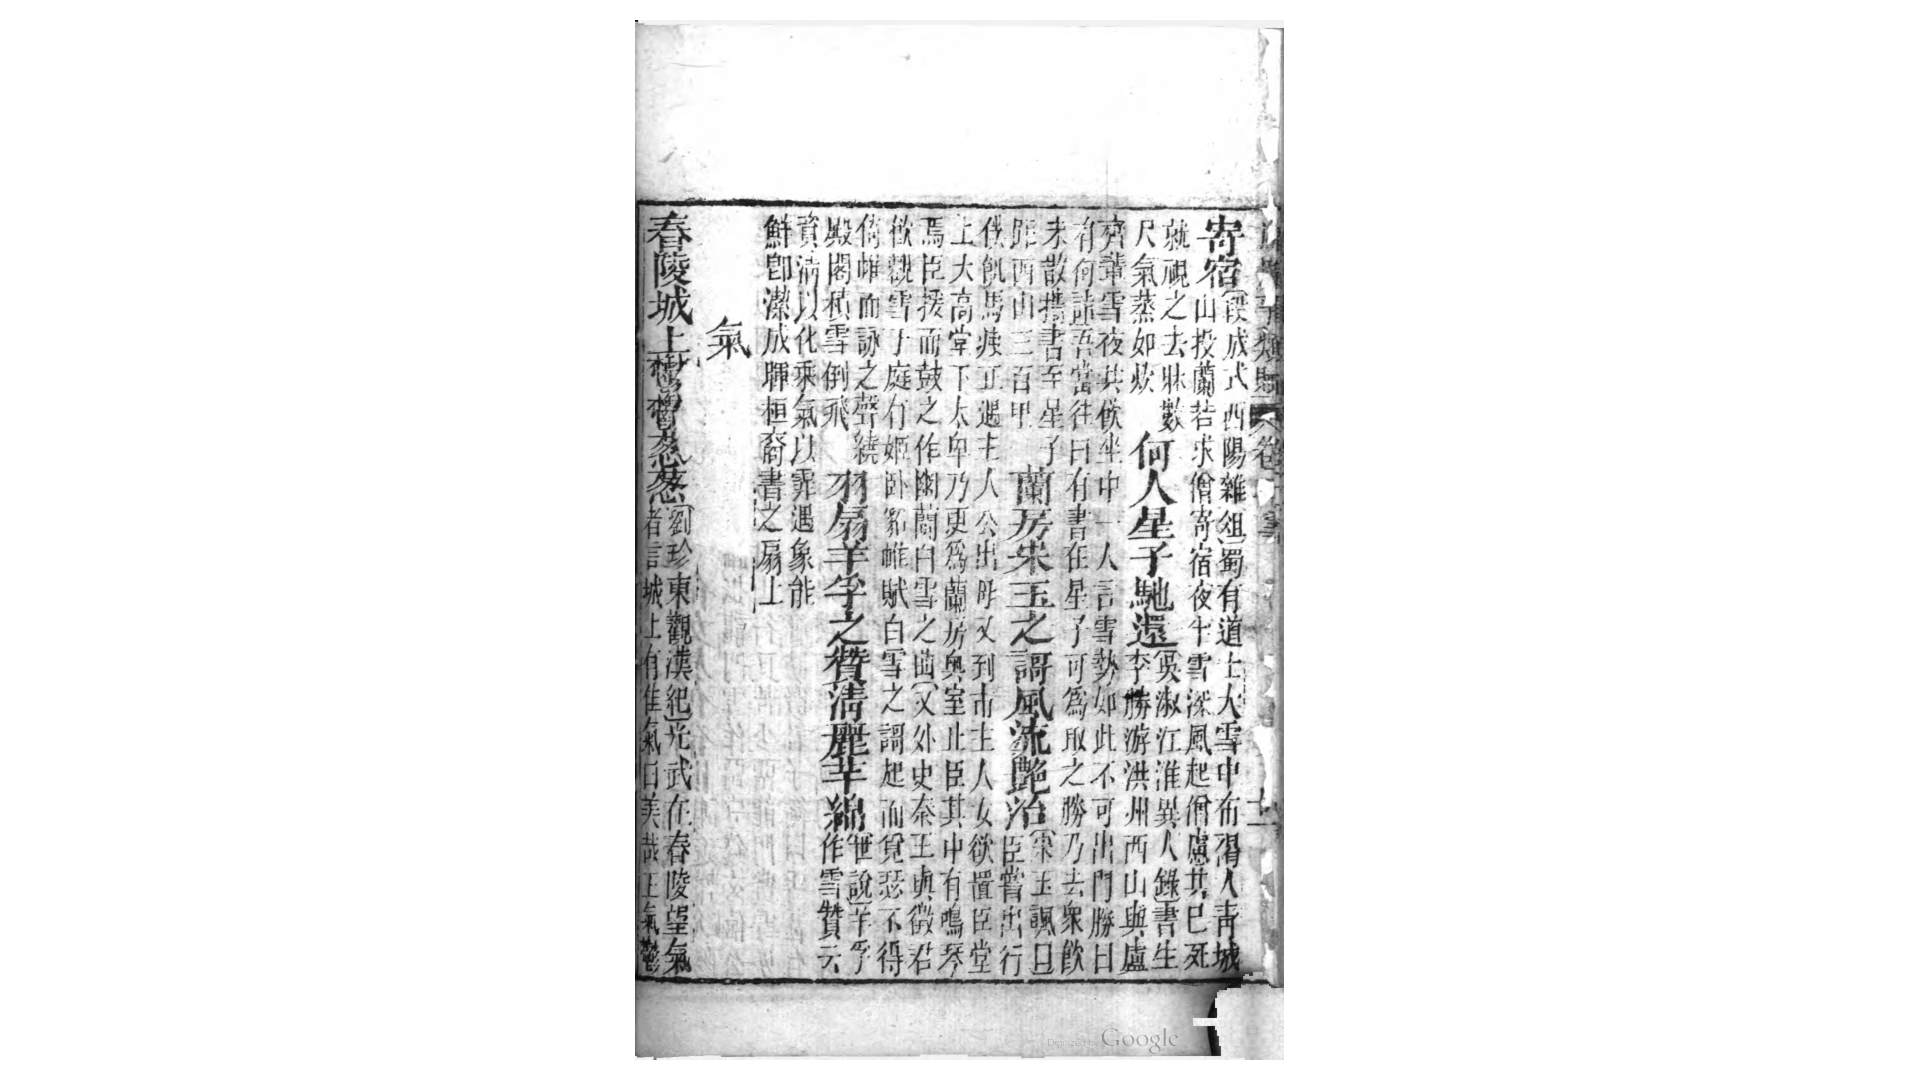 寄宿(段成式酉陽雜俎)蜀有道士大雪中布褐入青城
山投蘭若求僧寄宿夜半雪深風起僧慮其已死
就視之去牀數
尺氣蒸如炊
何人星子馳還(吳淑江淮異人錄)書生
李勝游洪州西山與盧
齊輩雪夜共飲坐中一人言雪勢如此不可出門勝曰
有何詣吾當往曰有書在星子可為取之勝乃去衆飲
未散攜書至星子
距西山三百里
蘭房宋玉之謌風流艷冶(宋玉諷)曰
臣嘗出行
僕飢馬疲正遇主人公出昨又到市主人女欲置臣堂
上太高堂下太卑乃更爲蘭房奧室止臣其中有鳴琴
焉臣援而鼓之作幽蘭白雪之曲(又外史秦王與徵君
欲觀雪于庭有姬卧貂帷賦白雪之謌起而覓瑟不得
倚帷而詠之聲繞
殿閣積雪倒飛
羽扇羊孚之贊清麗芊綿(世說)羊孚
作雪贊云
資清以化乘氣以霏遇象能
鮮卽潔成輝桓裔書之扇上
氣
舂陵城上鬱鬱葱葱(劉珍東觀漢紀)光武在舂陵望氣
者言城上有佳氣曰美哉王氣鬱
Digitized by Google